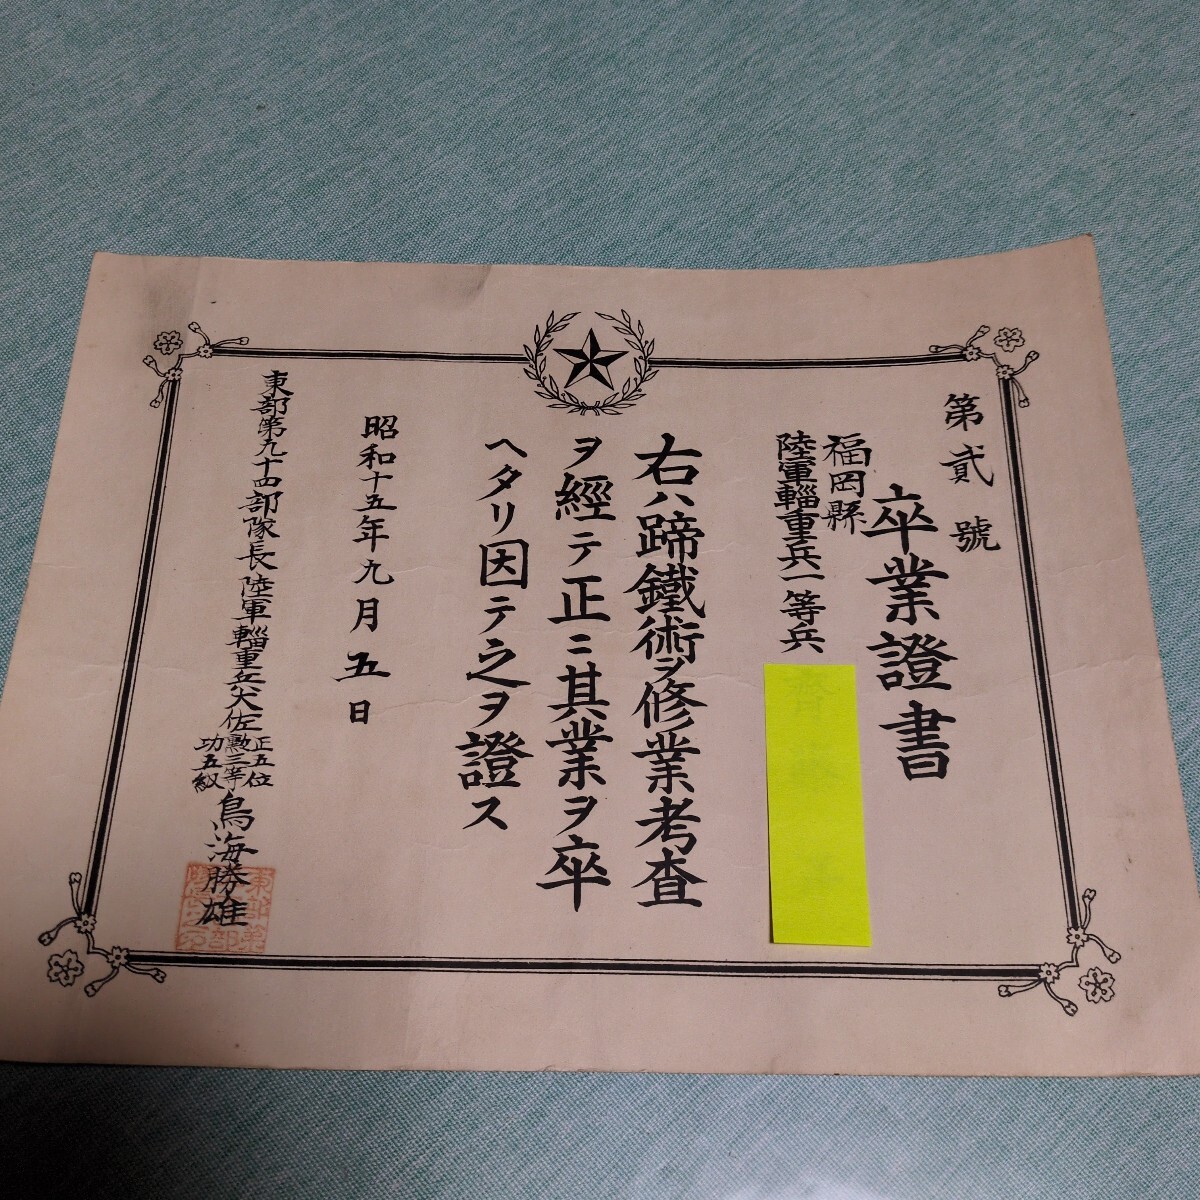 第貳號
卒業證書
福岡縣
陸軍輜重兵一等兵
右ハ蹄鐵術ヲ修業考査
ヲ經テ正ニ其業ヲ卒
ヘタリ因テ之ヲ證ス
昭和十五年九月五日
東部第九十四部隊長陸軍輜重兵大佐
正五位
勲三等
功五級
鳥海勝雄